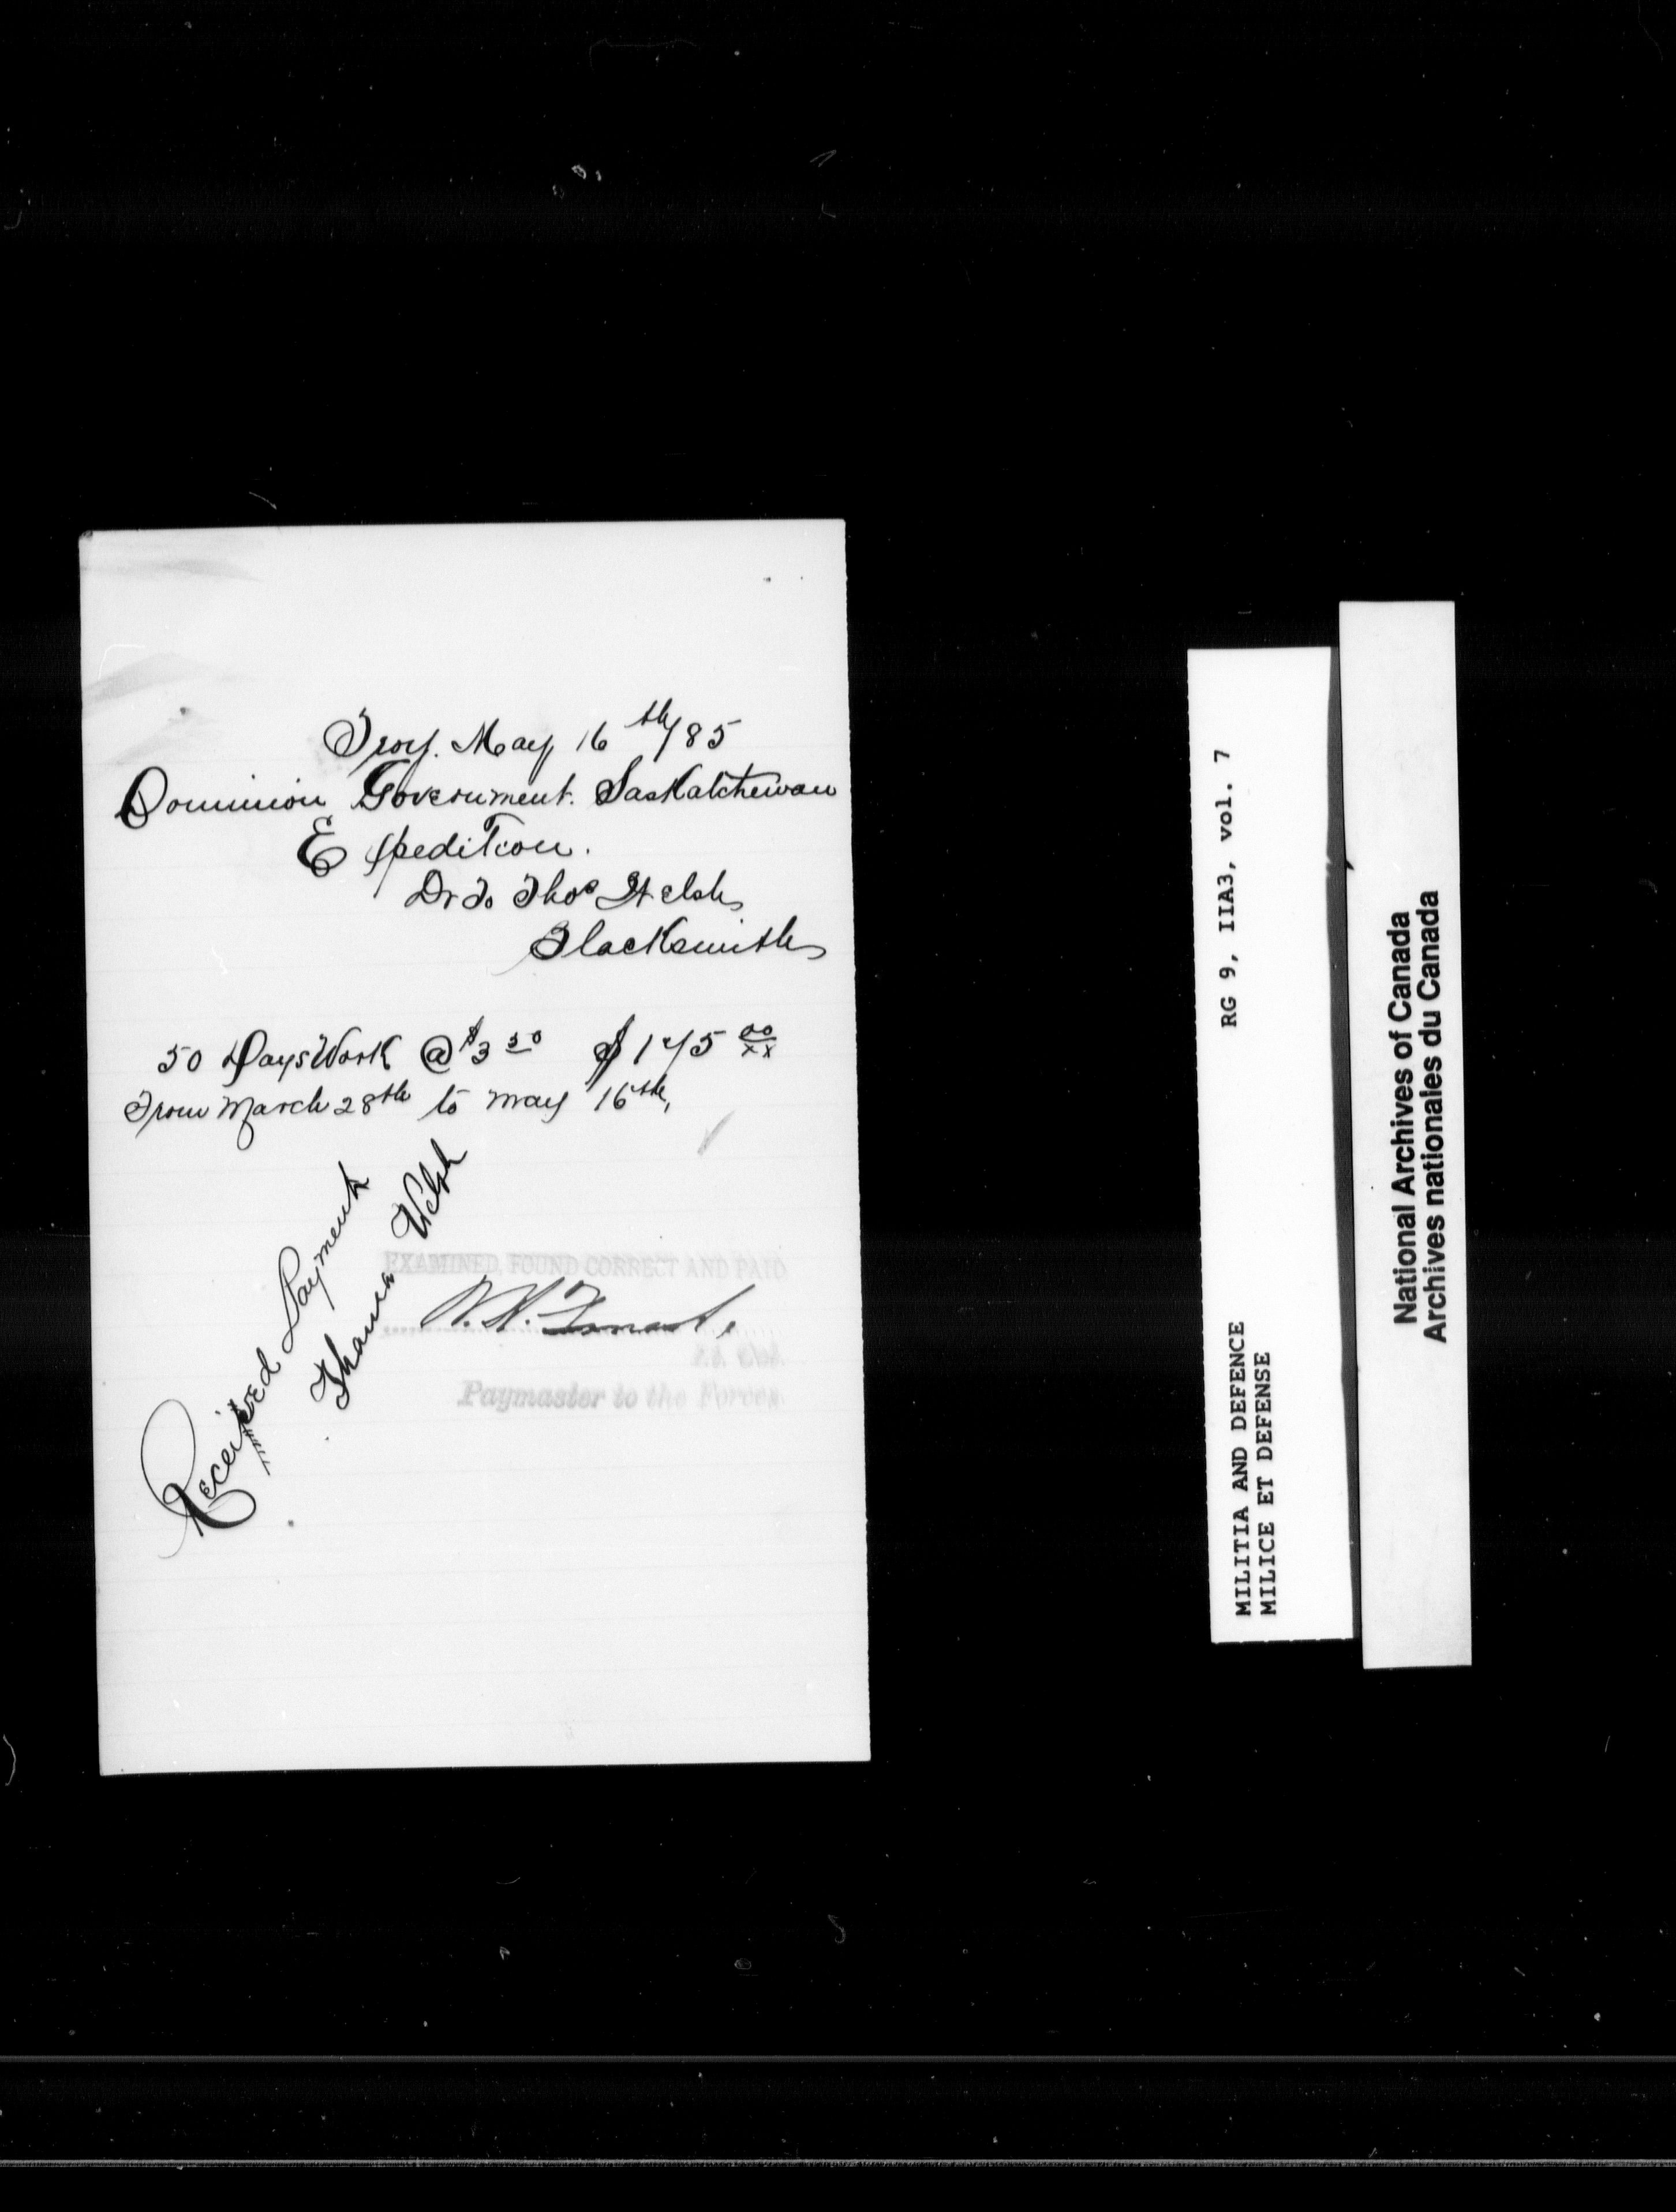 Troy. May 16th/85
Dominion Government. Saskatchewan
Expedition.
Dr To Thos Welsh
Blacksmith
50 Days Work @ $3 50 $175 00/xx
From March 28th to May 16th,
Received Payment
Thomas Welsh
EXAMINED, FOUND CORRECT AND PAID
W. H.
Paymaster to the Forces.
RG 9, IIA3, vol. 7
MILITIA AND DEFENCE
MILICE ET DEFENSE
National Archives of Canada
Archives nationales du Canada